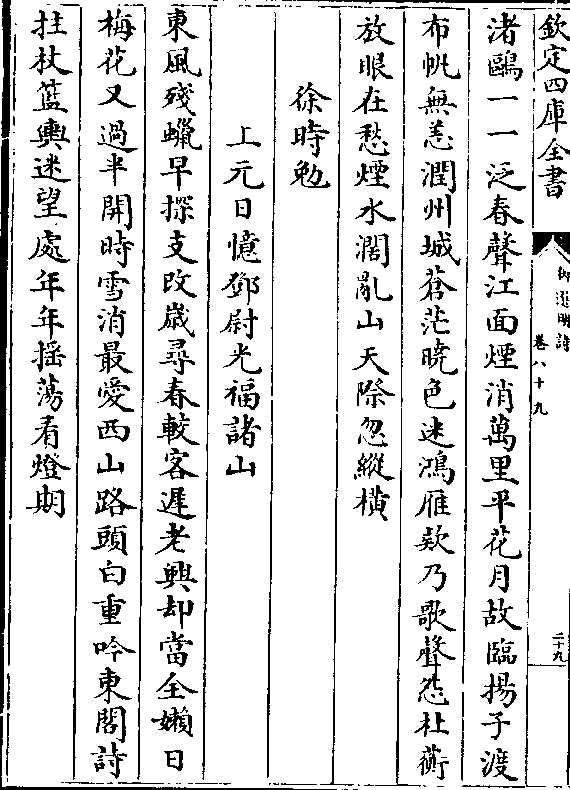 欽定四庫全書
御選明詩
卷八十九
二十九
渚鷗一一泛春聲江面煙消萬里平花月故臨揚子渡
布帆無恙潤州城蒼茫曉色迷鴻雁欵乃歌聲怨杜蘅
放眼在愁煙水濶亂山天際忽縱橫
徐時勉
上元日憶鄧尉光福諸山
東風殘蠟早探支改嵗尋春較客遲老興却當全嬾日
梅花又過半開時雪消最愛西山路頭白重吟東閣詩
拄杖籃輿迷望處年年摇蕩看燈期